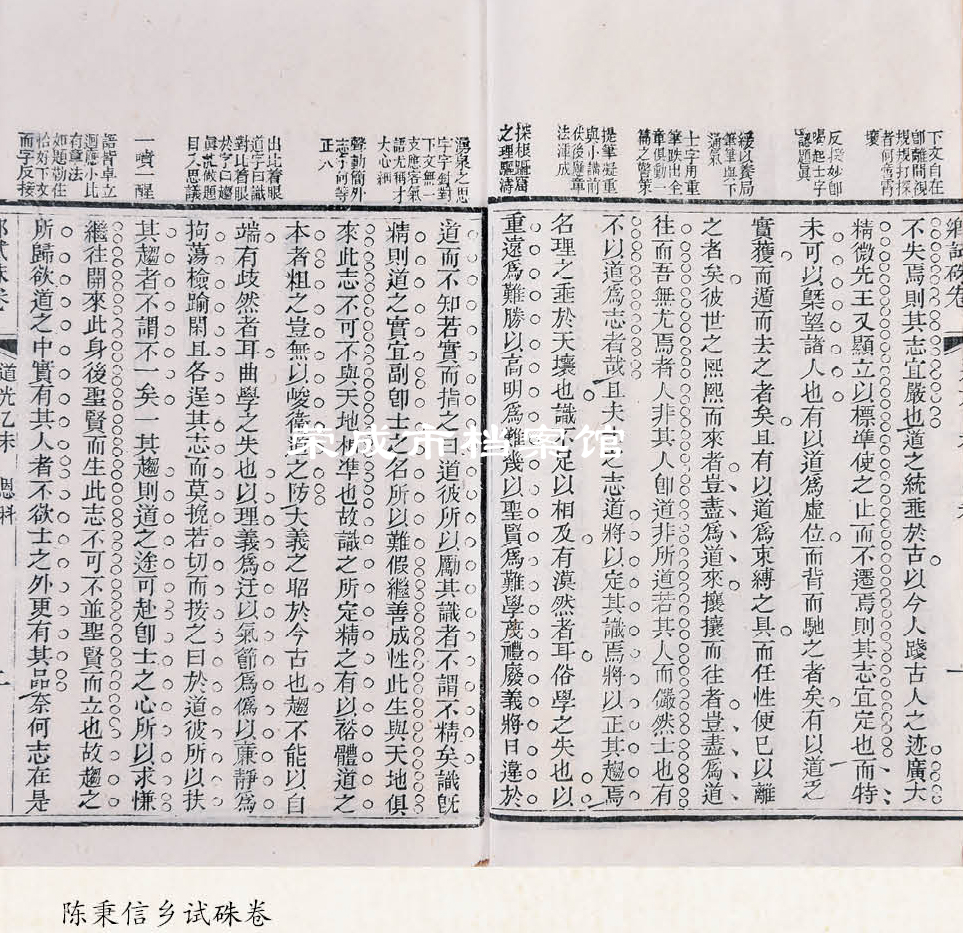 鄉試硃卷
不失焉則其志宜嚴也道之統垂於古以今人踐古人之迹廣大
精微先王又顯立以標準使之止而不遷焉則其志宜定也而特
未可以槩望諸人也有以道為虛位而背而馳之者矣有以道之
實獲而遁而去之者矣且有以道為束縛之具而任性便已以離
之者矣彼世之熙熙而來者豈盡為道來攘攘而往者豈盡為道
往而吾無尤焉者人非其人卽道非所道若其人而儼然士也有
不以道為志者哉且夫士之志道將以定其識焉將以正其趨焉
名理之垂於天壤也識不足以相及有漠然者耳俗學之失也以
重遠為難勝以高明為難幾以聖賢為難學蔑禮廢義將日違於
下文自在
卽離問視
規規打探
者何啻霄
壤
反揆妙卽
喝起士字
認題真
緩以養局
筆筆與下
通氣
士字用重
筆跌出全
章俱動一
篇之警策
提筆凝重
與小講前
後後應章
法渾成
探根驪窟
之理驅濤
湧泉之思
字字斜對
下文無一
支應客氣
語尤稱才
大心細
聲動簡外
志字何等
正八
出比着眼
道字曰識
對比着眼
於字曰趨
真詮破題
目人思議
一噴一醒
語皆卓立
迴應小比
有章法
如題勒住
恰好下文
而字反接
道而不知若實而指之曰道彼所以勵其識者不謂不精矣識旣
精則道之實宜副卽士之名所以難假繼善成性此生與天地俱
來此志不可不與天地相準也故識之所定精之有以裕體道之
本者粗之豈無以峻衛道之防大義之昭於今古也趨不能以自
端有歧然者耳曲學之失也以理義為迂以氣節為僞以廉靜為
拘蕩檢踰閑且各逞其志而莫挽若切而按之曰於道彼所以扶
其趨者不謂不一矣一其趨則道之途可赴卽士之心所以求慊
繼往開來此身後聖賢而生此志不可不並聖賢而立也故趨之
所歸欲道之中實有其人者不欲士之外更有其品奈何志在是
鄉試硃卷
道光乙未
恩科
荣成市档案馆
陈秉信乡试硃卷